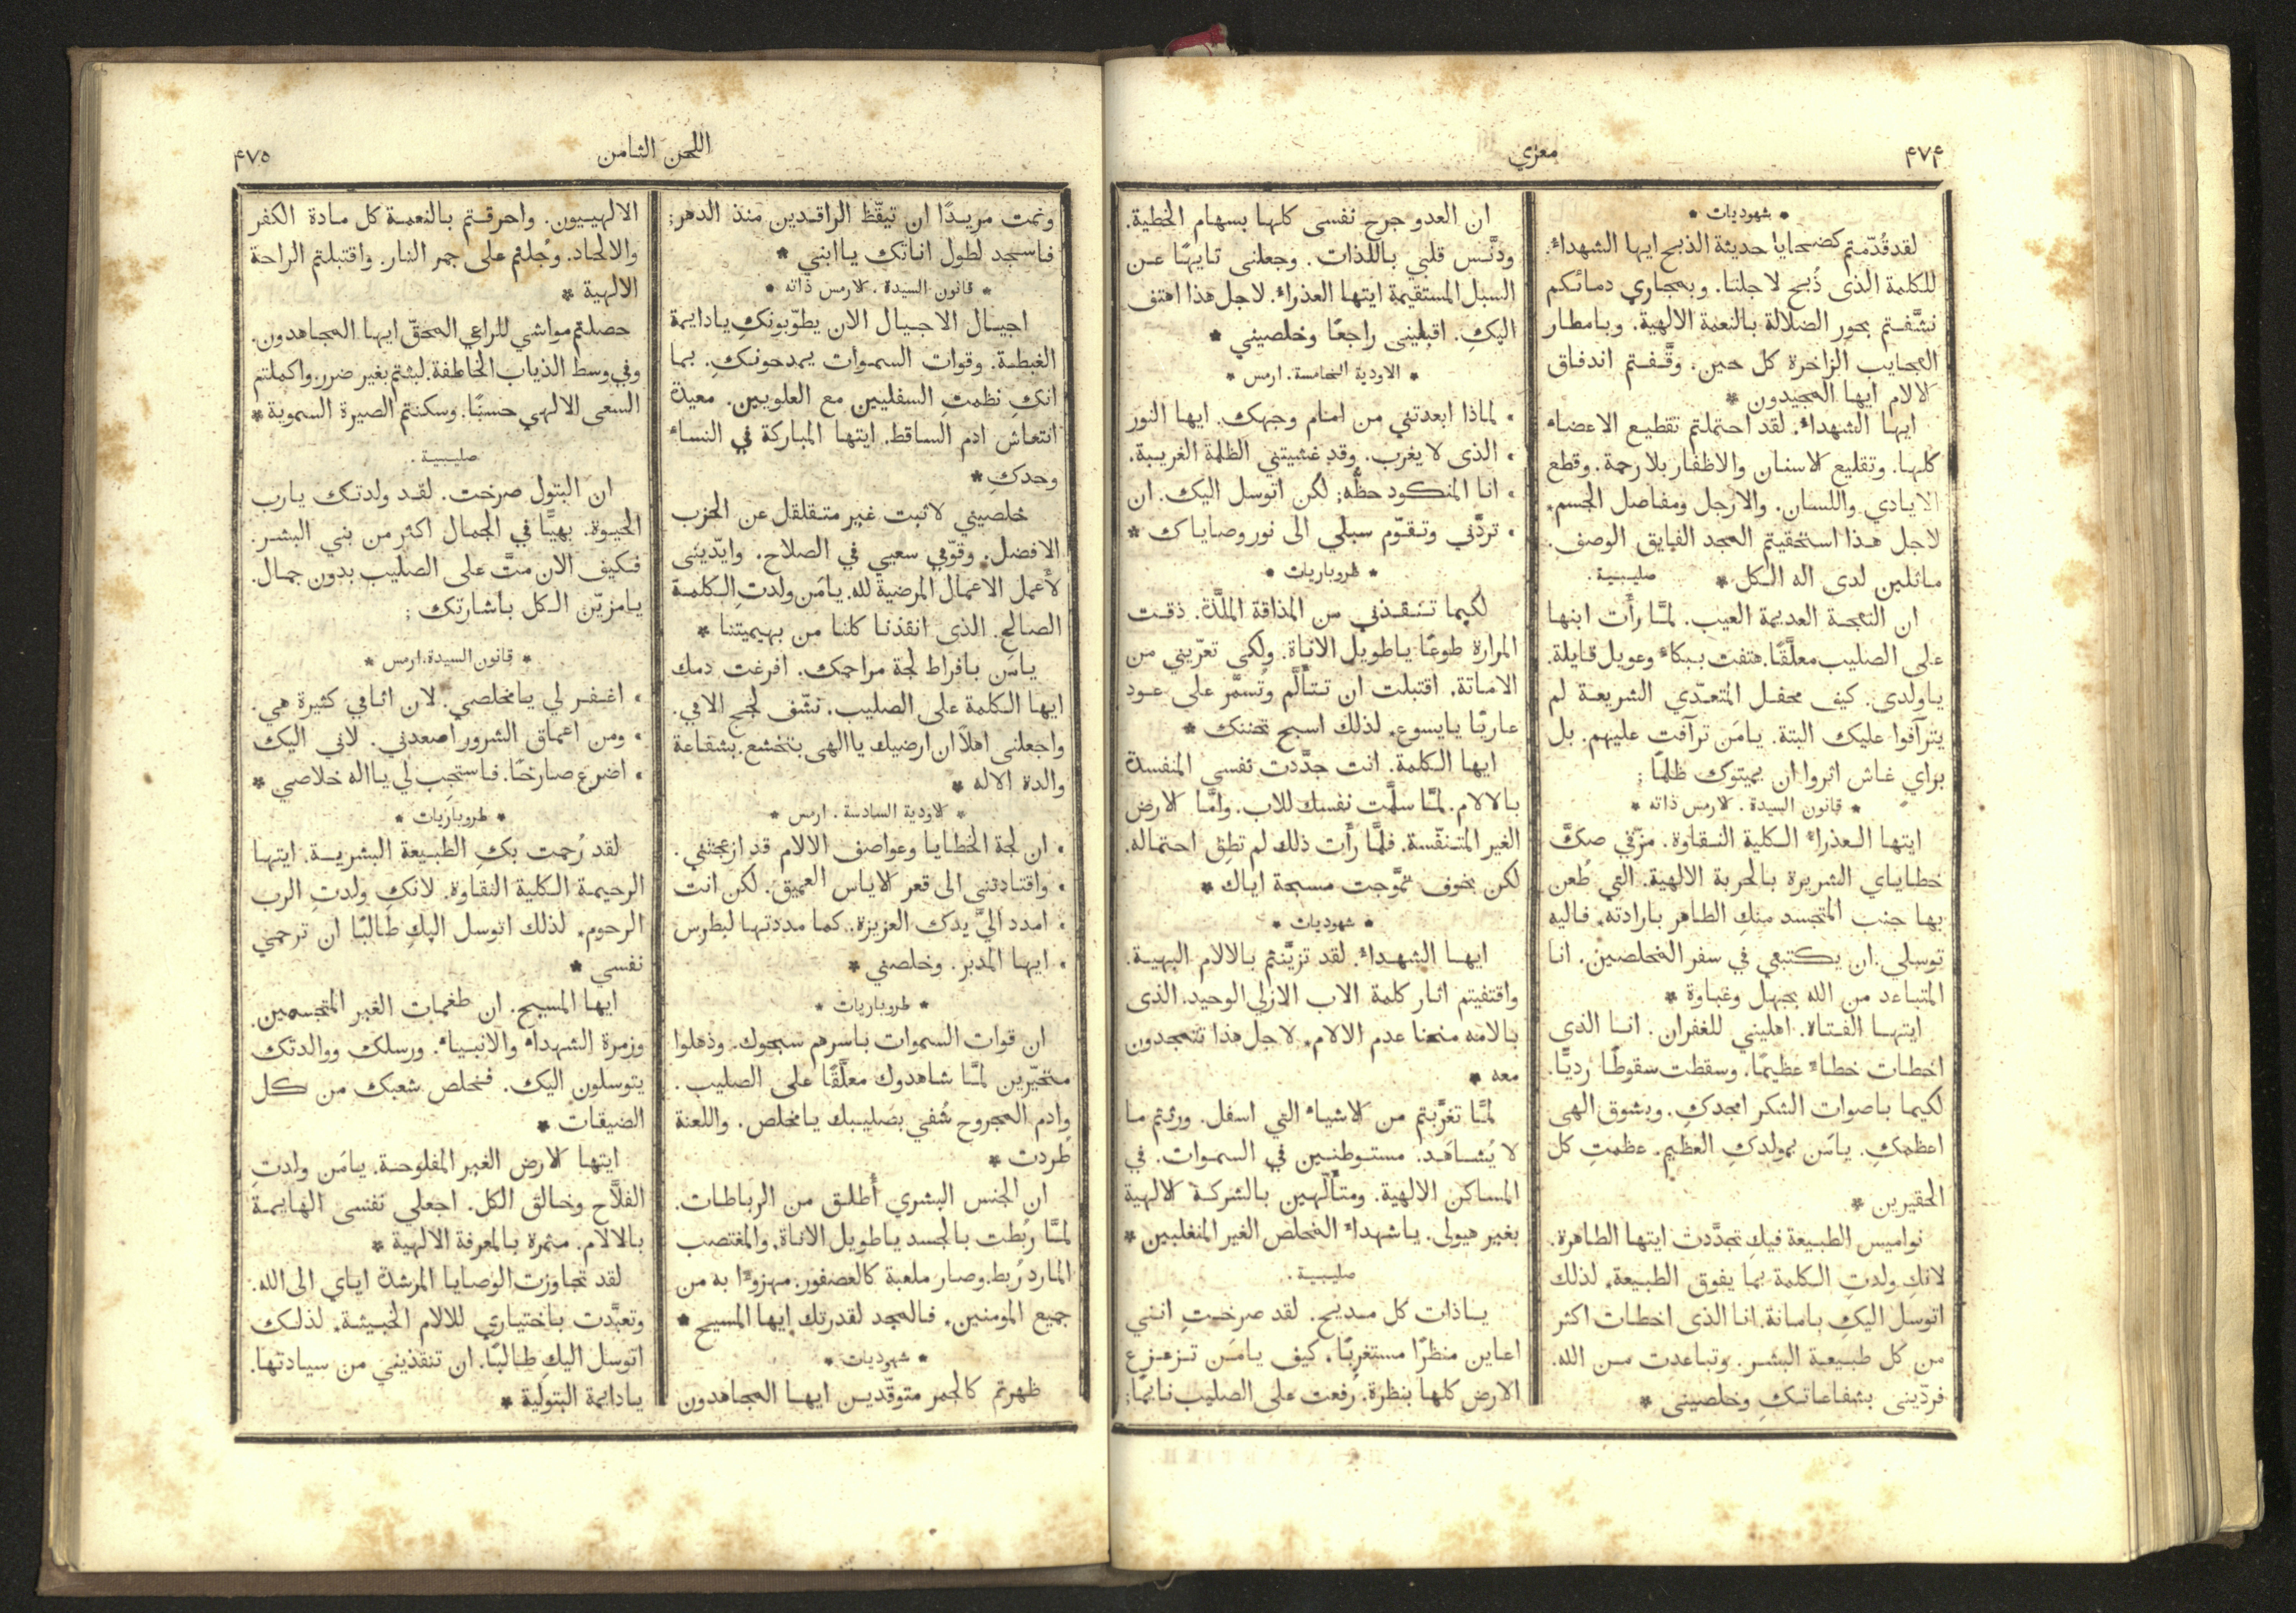 ۴۷۴
معزي
* شهوديات *
لقد قُدّمتم كضحايا حديثة الذبح ايها الشهداء.
للكلمة الذى ذُبح لاجلنا. وبمجاري دمائكم
نشَّفتم بحور الضلالة بالنعمة الالهية. وبامطار
العجايب الزاخرة كل حين. وقَّفتم اندفاق
الالام ايها المجيدون *
ايها الشهداء. لقد احتملتم تقطيع الاعضاء
كلها. وتقليع الاسنان والاظفار بلا رحمة. وقطع
الايادي واللسان. والارجل ومفاصل الجسم.
لاجل هذا استحقيتم المجد الفايق الوصف.
ماثلين لدى اله الكل * صليبية.
ان النعجة العديمة العيب. لمَّا رأَت ابنها
على الصليب معلَّقًا. هتفت ببكاء وعويل قايلة.
ياولدى. كيف محفل المتعدّي الشريعة لم
يترآفوا عليك البتة. يامَن ترآفت عليهم. بل
براي غاش اثروا ان يميتوك ظلمًا:
* قانون السيدة. لارمس ذاته *
ايتها العذراء الكلية النقاوة. مزّقي صكَّ
خطاياي الشريرة بالحربة الالهية. التي طُعن
بها جنب المتجسد منكِ الطاهر بارادته. فاليه
توسلي. ان يكتبني في سفر المخلصين. انا
المتباعد من الله بجهل وغباوة *
ايتها الفتاة. اهليني للغفران. انا الذى
اخطات خطاءً عظيمًا. وسقطت سقوطًا رديًّا.
لكيما باصوات الشكر امجدكِ. وبشوق الهى
اعظمكِ. يامَن بمولدكِ العظيم. عظمتِ كل
الحقيرين *
نواميس الطبيعة فيكِ تجدَّدت ايتها الطاهرة.
لانكِ ولدتِ الكلمة بما يفوق الطبيعة. لذلك
اتوسل اليكِ بامانة. انا الذى اخطات اكثر
من كل طبيعة البشر. وتباعدت من الله.
فردّينى بشفاعاتكِ وخلصينى *
ان العدو جرح نفسى كلها بسهام الخطية.
ودنَّس قلبي باللذات. وجعلنى تايهًا عن
السبل المستقيمة ايتها العذراء. لاجل هذا اهتف
اليكِ. اقبلينى راجعًا وخلصيني *
* الاودية الخامسة. ارمس *
• لماذا ابعدتني من امام وجهك. ايها النور
• الذى لا يغرب. وقد غشيتني الظلمة الغريبة.
• انا المنكود حظُّه: لكن اتوسل اليك. ان
• تردَّني وتقوّم سبلي الى نور وصاياك *
* طروباريات *
لكيما تنقذني من المذاقة الملذَّة. ذقت
المرارة طوعًا ياطويل الاناة. ولكى تعرّيني من
الاماتة. اقتبلت ان تتألَّم وتُسمَّر على عود
عاريًا يايسوع. لذلك اسبح تحننك *
ايها الكلمة. انت جدَّدت نفسى المنفسدة
بالالام. لمَّا سلَّمت نفسك للاب. وامَّا الارض
الغير المتنفّسة. فلمَّا رأَت ذلك لم تطِق احتماله.
لكن بخوف تموَّجت مسبحة اياك *
* شهوديات *
ايها الشهداء. لقد تزيَّنتم بالالام البهية.
واقتفيتم اثار كلمة الاب الازلي الوحيد. الذى
بالامه منحنا عدم الالام. لاجل هذا تتمجدون
معه *
لمَّا تغرَّبتم من الاشياء التي اسفل. ورثتم ما
لا يُشاهَد. مستوطنين في السموات. في
المساكن الالهية. ومتألّهين بالشركة الالهية
بغير هيولى. ياشهداء المخلص الغير المنغلبين *
صليبية.
ياذات كل مديح. لقد صرختِ انني
اعاين منظرًا مستغربًا. كيف يامَن تزعزع
الارض كلها بنظرة. رفعت على الصليب نايمًا:
اللحن الثامن
۴۷۵
ونمت مريدًا ان تيقّظ الراقدين منذ الدهر:
فاسجد لطول اناتك ياابني *
* قانون السيدة. لارمس ذاته *
اجيال الاجيال الان يطوّبونكِ يادايمة
الغبطة. وقوات السموات يمدحونكِ. بما
انكِ نظمتِ السفليين مع العلويين. معيدة
انتعاش ادم الساقط. ايتها المباركة في النساء
وحدكِ *
خلصيني لاثبت غير متقلقل عن الحزب
الافضل. وقوّمي سعيي في الصلاح. وايّدينى
لأعمل الاعمال المرضية لله. يامَن ولدتِ الكلمة
الصالح. الذى انقذنا كلنا من بهيميتنا *
يامَن بافراط لجة مراحمك. افرغت دمك
ايها الكلمة على الصليب. نشّف لجج الامي.
واجعلنى اهلًا ان ارضيك ياالهى بتخشع. بشفاعة
والدة الاله *
* الاودية السادسة. ارمس *
• ان لجة الخطايا وعواصف الالام قد ازعجتني.
• واقتادتنى الى قعر الاياس العميق. لكن انت
• امدد اليَّ يدك العزيزة. كما مددتها لبطرس
• ايها المدبر. وخلصني *
* طروباريات *
ان قوات السموات باسرهم سبحوك. وذهلوا
متحيّرين لمَّا شاهدوك معلَّقًا على الصليب.
وادم المجروح شُفي بصليبك يامخلص. واللعنة
طُردت *
ان الجنس البشري أُطلق من الرباطات.
لمَّا رُبطت بالجسد ياطويل الاناة. والمغتصب
المارد رُبط. وصار ملعبة كالعصفور. مهزوءًا به من
جميع المومنين. فالمجد لقدرتك ايها المسيح *
* شهوديات *
ظهرتم كالجمر متوقّدين ايها المجاهدون
الالهييون. واحرقتم بالنعمة كل مادة الكفر
والالحاد. وجُلتم على جمر النار. واقتبلتم الراحة
الالهية *
حصلتم مواشي للراعي المحقّ ايها المجاهدون.
وفي وسط الذياب الخاطفة. لبثتم بغير ضرر. واكملتم
السعى الالهي حسنًا. وسكنتم الصيرة السموية *
صليبية.
ان البتول صرخت. لقد ولدتك يارب
الحيوة. بهيًّا في الجمال اكثر من بني البشر.
فكيف الان متَّ على الصليب بدون جمال.
يامزيّن الكل باشارتك:
* قانون السيدة. ارمس *
• اغفر لي يامخلصي. لان اثامي كثيرة هي.
• ومن اعماق الشرور اصعدني. لاني اليك
• اضرع صارخًا. فاستجب لي يااله خلاصي *
* طروباريات *
لقد رُحمت بكِ الطبيعة البشرية. ايتها
الرحيمة الكلية النقاوة. لانكِ ولدتِ الرب
الرحوم. لذلك اتوسل اليكِ طالبًا ان ترحمي
نفسي *
ايها المسيح. ان طغمات الغير المتجسمين.
وزمرة الشهداء والانبياء. ورسلك ووالدتك
يتوسلون اليك. فخلص شعبك من كل
الضيقات *
ايتها الارض الغير المفلوحة. يامَن ولدتِ
الفلَّاح وخالق الكل. اجعلي نفسى الهايمة
بالالام. مثمرة بالمعرفة الالهية *
لقد تجاوزت الوصايا المرشدة اياي الى الله.
وتعبَّدت باختياري للالام الخبيثة. لذلك
اتوسل اليكِ طالبًا. ان تنقذيني من سيادتها.
يادايمة البتولية *